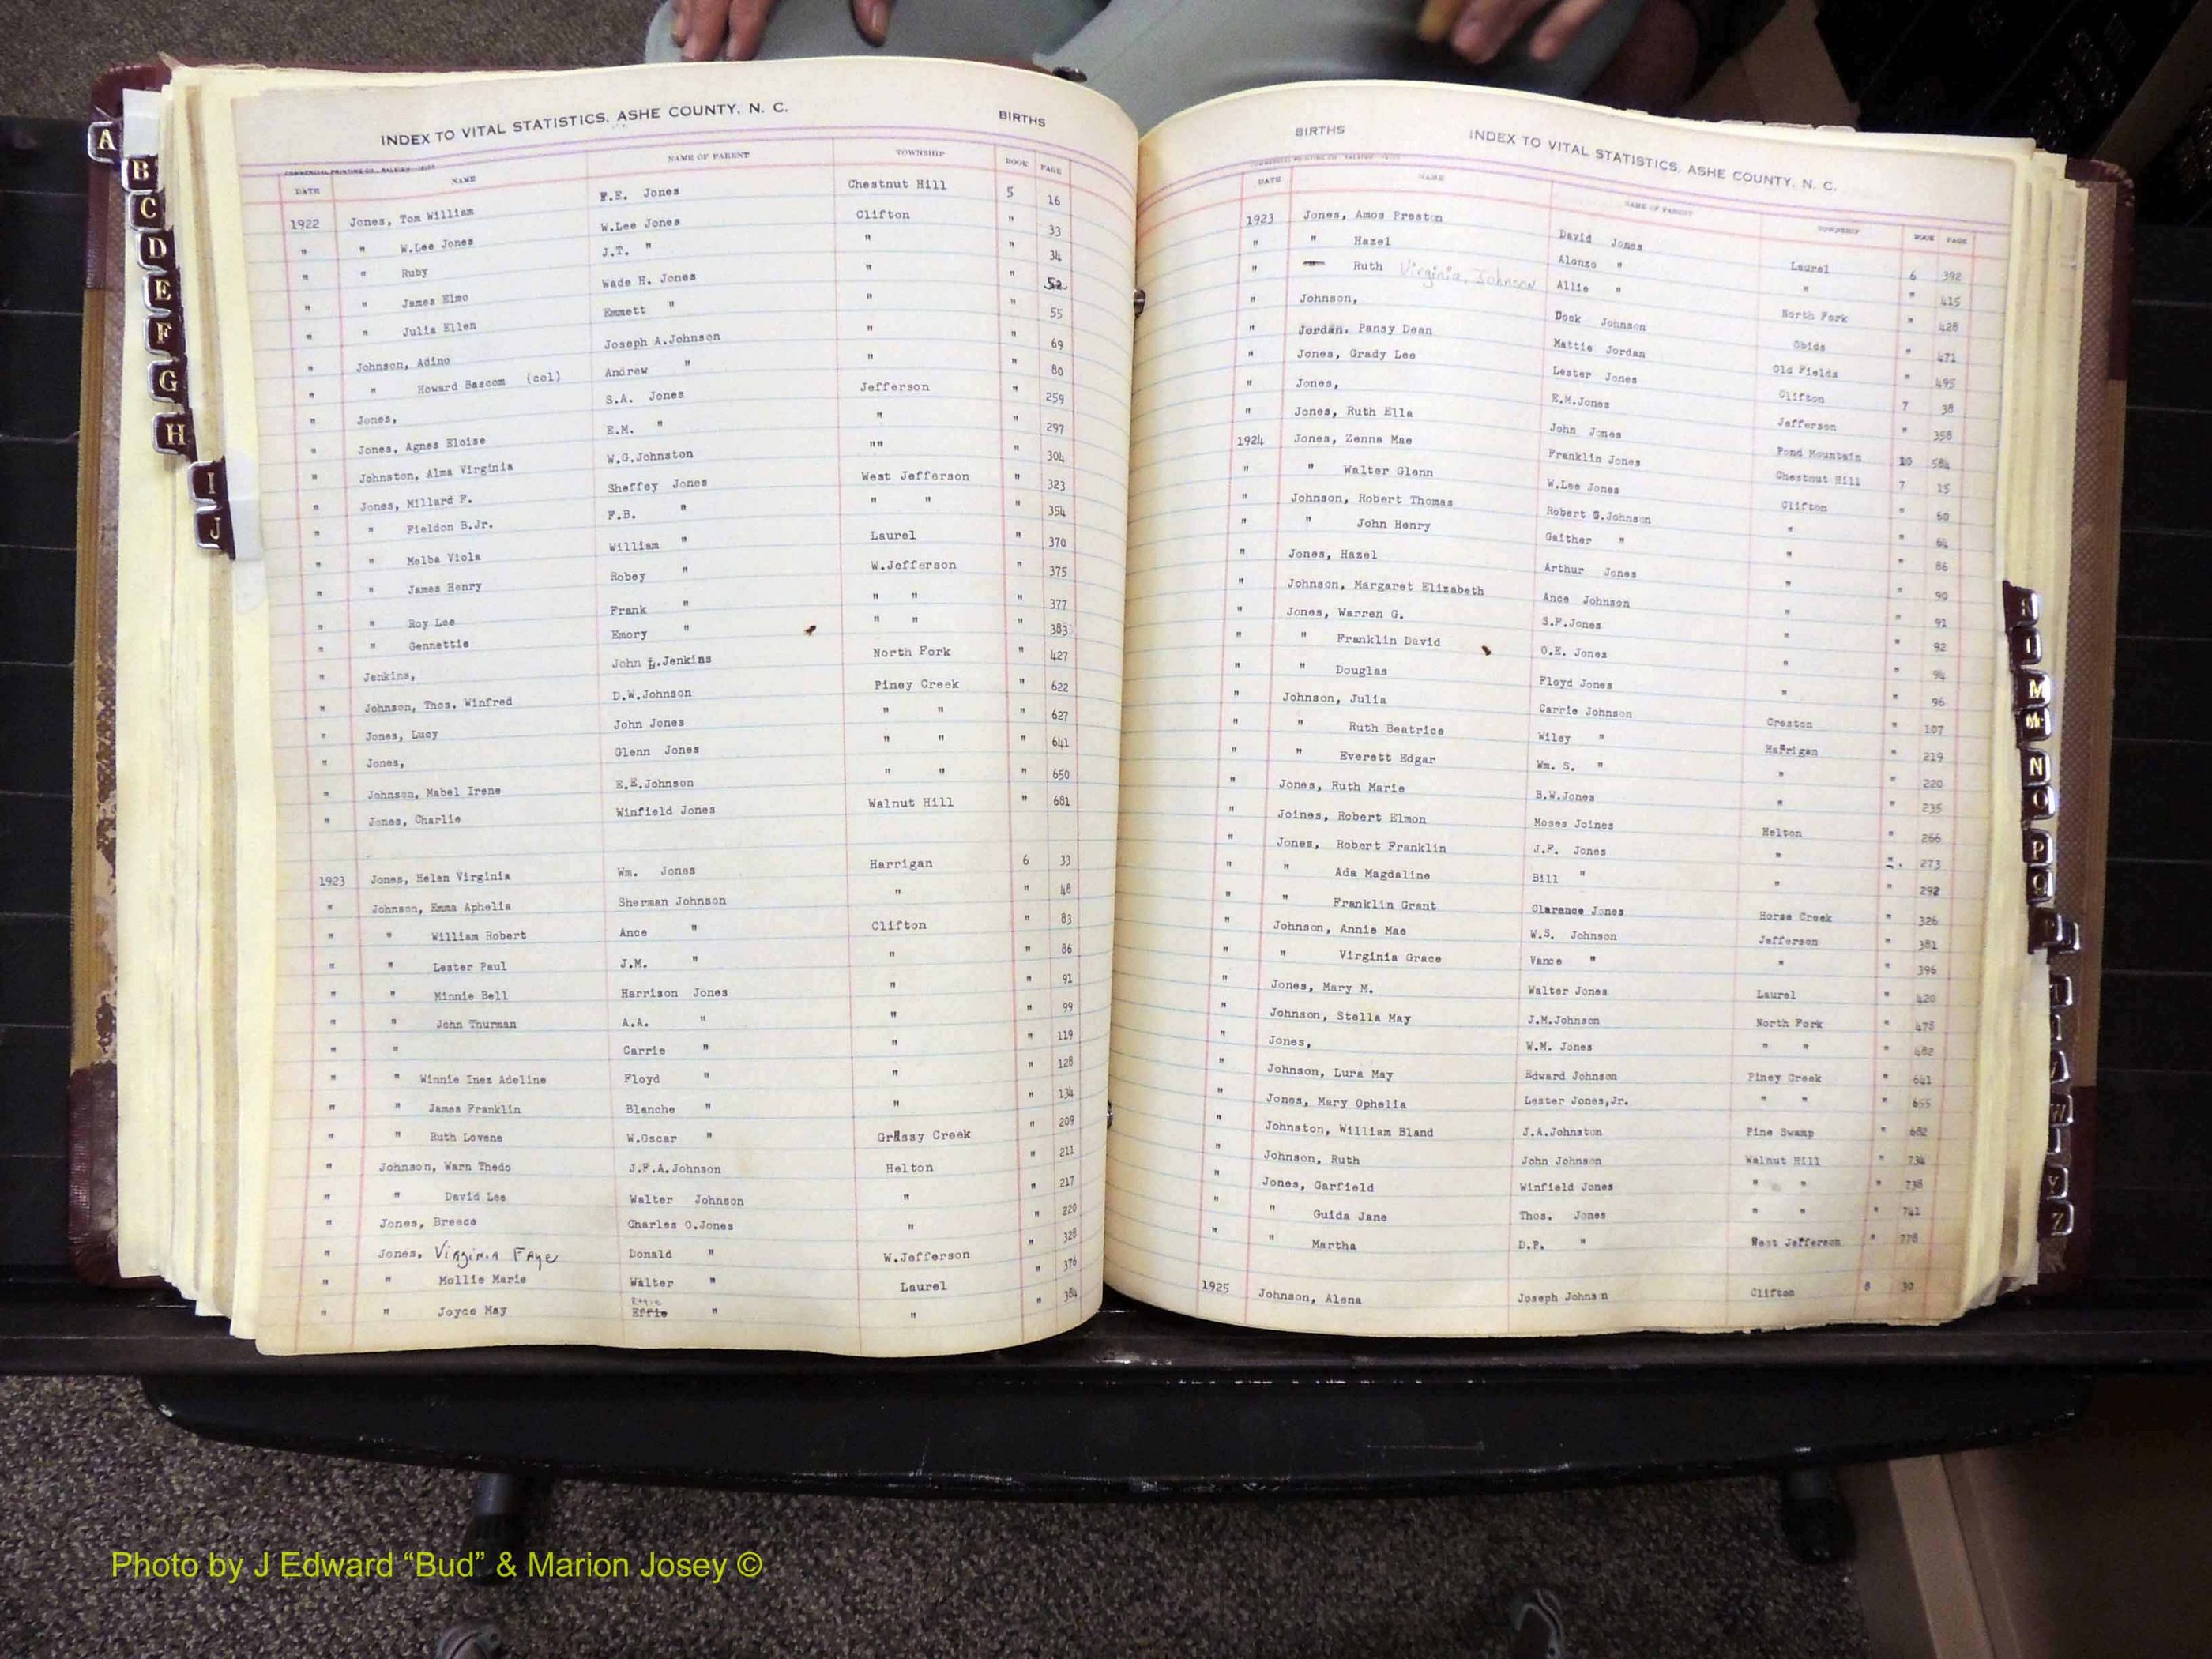 INDEX TO VITAL STATISTICS, ASHE COUNTY, N. C. BIRTHS
COMMERCIAL PRINTING CO., RALEIGH
DATE NAME NAME OF PARENT TOWNSHIP BOOK PAGE
1922 Jones, Tom William F.E. Jones Chestnut Hill 5 16
" " W.Lee Jones W.Lee Jones Clifton " 33
" " Ruby J.T. " " " 34
" " James Elmo Wade H. Jones " " 52
" " Julia Ellen Emmett " " " 55
" Johnson, Adino Joseph A.Johnson " " 69
" " Howard Bascom (col) Andrew " " " 80
" Jones, S.A. Jones Jefferson " 259
" Jones, Agnes Eloise E.M. " " " 297
" Johnston, Alma Virginia W.G.Johnston "" " 304
" Jones, Millard F. Sheffey Jones West Jefferson " 323
" " Fieldon B.Jr. F.B. " " " " 354
" " Melba Viola William " Laurel " 370
" " James Henry Robey " W.Jefferson " 375
" " Roy Lee Frank " " " " 377
" " Gennettie Emory " " " " 383
" Jenkins, John L.Jenkins North Fork " 427
" Johnson, Thos. Winfred D.W.Johnson Piney Creek " 622
" Jones, Lucy John Jones " " " 627
" Jones, Glenn Jones " " " 641
" Johnson, Mabel Irene E.E.Johnson " " " 650
" Jones, Charlie Winfield Jones Walnut Hill " 681
1923 Jones, Helen Virginia Wm. Jones Harrigan 6 33
" Johnson, Emma Aphelia Sherman Johnson " " 48
" " William Robert Ance " Clifton " 83
" " Lester Paul J.M. " " " 86
" " Minnie Bell Harrison Jones " " 91
" " John Thurman A.A. " " " 99
" " Carrie " " " 119
" " Winnie Inez Adeline Floyd " " " 128
" " James Franklin Blanche " " " 134
" " Ruth Lovene W.Oscar " Grassy Creek " 209
" Johnson, Warn Thedo J.F.A.Johnson Helton " 211
" " David Lee Walter Johnson " " 217
" Jones, Breece Charles O.Jones " " 220
" Jones, Virginia Faye Donald " W.Jefferson " 328
" " Mollie Marie Walter " Laurel " 376
" " Joyce May Effie " " " 384
BIRTHS INDEX TO VITAL STATISTICS, ASHE COUNTY, N. C.
DATE NAME NAME OF PARENT TOWNSHIP BOOK PAGE
1923 Jones, Amos Preston David Jones Laurel 6 392
" " Hazel Alonzo " " " 415
" " Ruth Virginia, Johnson Allie " North Fork " 428
" Johnson, Dock Johnson Obids " 471
" Jordan, Pansy Dean Mattie Jordan Old Fields " 495
" Jones, Grady Lee Lester Jones Clifton 7 38
" Jones, E.M.Jones Jefferson " 358
" Jones, Ruth Ella John Jones Pond Mountain 10 584
1924 Jones, Zenna Mae Franklin Jones Chestnut Hill 7 15
" " Walter Glenn W.Lee Jones Clifton " 60
" Johnson, Robert Thomas Robert G.Johnson " " 64
" " John Henry Gaither " " " 86
" Jones, Hazel Arthur Jones " " 90
" Johnson, Margaret Elizabeth Ance Johnson " " 91
" Jones, Warren G. S.F.Jones " " 92
" " Franklin David O.E. Jones " " 94
" " Douglas Floyd Jones " " 96
" Johnson, Julia Carrie Johnson Creston " 107
" " Ruth Beatrice Wiley " Harrigan " 219
" " Everett Edgar Wm. S. " " " 220
" Jones, Ruth Marie B.W.Jones " " 235
" Joines, Robert Elmon Moses Joines Helton " 266
" Jones, Robert Franklin J.F. Jones " ". 273
" " Ada Magdaline Bill " " " 292
" " Franklin Grant Clarance Jones Horse Creek " 326
" Johnson, Annie Mae W.S. Johnson Jefferson " 381
" " Virginia Grace Vance " " " 396
" Jones, Mary M. Walter Jones Laurel " 420
" Johnson, Stella May J.M.Johnson North Fork " 478
" Jones, W.M. Jones " " " 482
" Johnson, Lura May Edward Johnson Piney Creek " 641
" Jones, Mary Ophelia Lester Jones,Jr. " " " 655
" Johnston, William Bland J.A.Johnston Pine Swamp " 682
" Johnson, Ruth John Johnson Walnut Hill " 734
" Jones, Garfield Winfield Jones " " " 738
" " Guida Jane Thos. Jones " " " 741
" " Martha D.P. " West Jefferson " 778
1925 Johnson, Alena Joseph Johns n Clifton 8 30
A
B
C
D
E
F
G
H
I
J
M
N
O
P
Q
W
Y
Z
Photo by J Edward “Bud” & Marion Josey ©